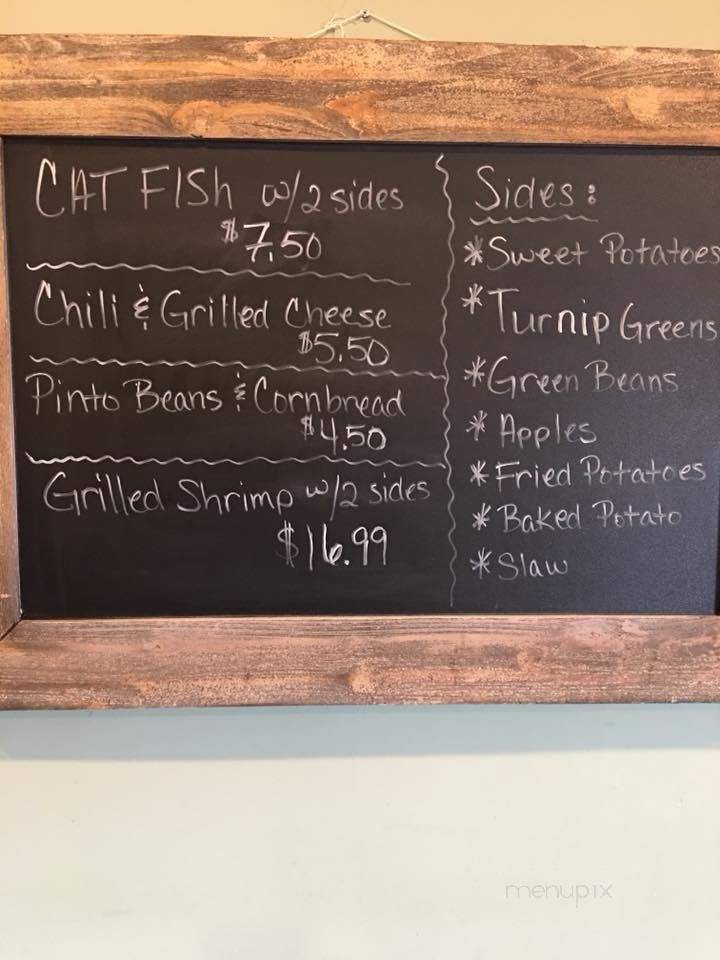 CAT FISh w/2 sides
$7.50
Chili & Grilled Cheese
$5.50
Pinto Beans & Cornbread
$4.50
Grilled Shrimp w/2 sides
$16.99
Sides:
*Sweet Potatoes
*Turnip Greens
*Green Beans
*Apples
*Fried Potatoes
*Baked Potato
*Slaw
menupix